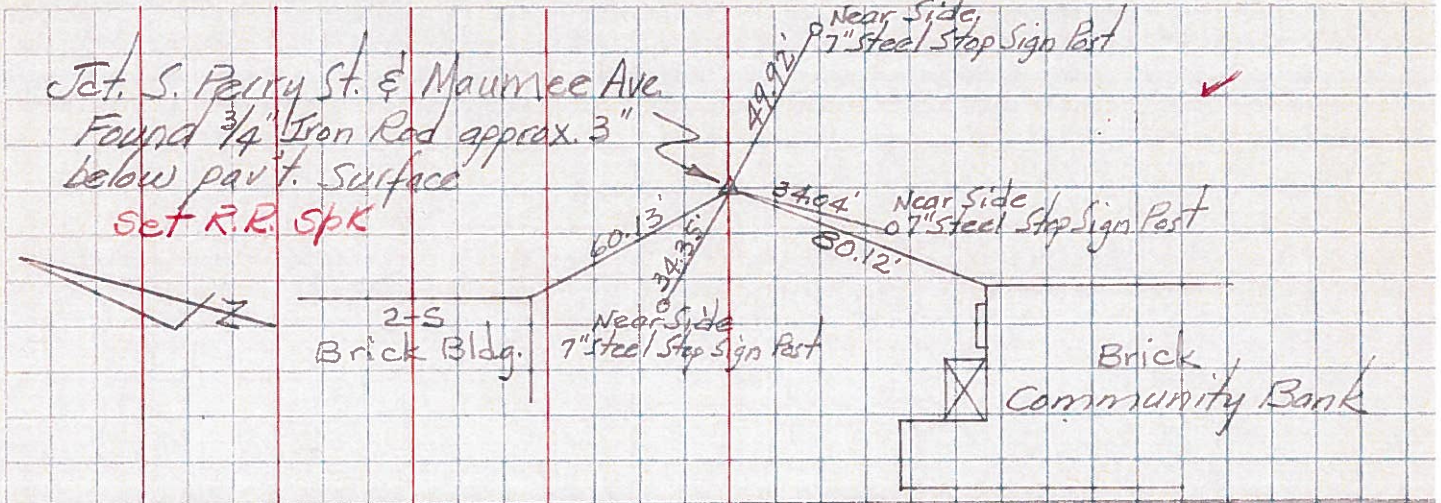 Jct. S. Perry St. & Maumee Ave.
Found 3/4" Iron Rod approx. 3"
below pav't. Surface
Set R.R. Spk
Near Side
7" Steel Stop Sign Post
49.92'
34.04'
Near Side
7" Steel Stop Sign Post
80.12'
60.13'
34.35'
Near Side
7" Steel Stop Sign Post
Z
2-S
Brick Bldg.
Brick
Community Bank